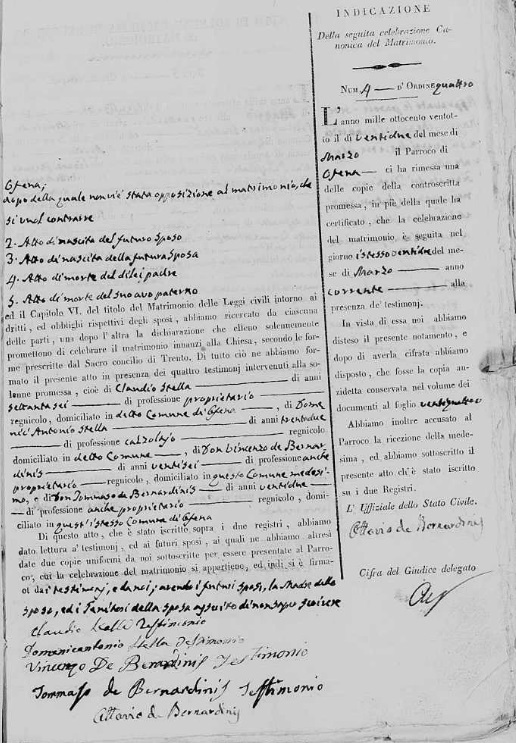 Ofena;
dopo della quale non vi è stata opposizione al matrimonio, che
si vuol contrarre
2. Atto di nascita del futuro sposo
3. Atto di nascita della futura sposa
4. Atto di morte del di lei padre
5. Atto di morte del suo avo paterno
ed il Capitolo VI. del titolo del Matrimonio delle Leggi civili intorno ai
dritti, ed obblighi rispettivi degli sposi, abbiamo ricercato da ciascuna
delle parti, una dopo l'altra la dichiarazione che elleno solennemente
promettono di celebrare il matrimonio innanzi alla Chiesa, secondo le for-
me prescritte dal Sacro concilio di Trento. Di tutto ciò ne abbiamo for-
mato il presente atto in presenza de' quattro testimonj intervenuti alla so-
lenne promessa, cioè di Claudio Stella di anni
settantasei di professione proprietario
regnicolo, domiciliato in detto Comune di Ofena, di Dome
nic'Antonio Stella di anni trentadue
di professione calzolajo regnicolo
domiciliato in detto Comune, di Don Vincenzo de Bernar
dinis di anni ventisei di professione anche
proprietario regnicolo, domiciliato in questo Comune medesi
mo, e di Don Tommaso de Bernardinis di anni ventidue
di professione anche proprietario regnicolo, domi-
ciliato in quest'istesso Comune di Ofena
Di questo atto, che è stato iscritto sopra i due registri, abbiamo
dato lettura a' testimonj, ed ai futuri sposi, ai quali ne abbiamo altresì
date due copie uniformi da noi sottoscritte per essere presentate al Parro-
co, cui la celebrazione del matrimonio si appartiene, ed indi si è firma-
to dai testimonj, e da noi, avendo i futuri sposi, la Madre dello
sposo, ed i Genitori della sposa asserito di non saper scrivere
Claudio Stella Testimonio
Domenicantonio Stella Testimonio
Vincenzo De Berardinis Testimonio
Tommaso de Bernardinis Testimonio
Ottavio de Bernardinis
INDICAZIONE
Della seguita celebrazione Ca-
nonica del Matrimonio.
NUM. 4 D' ORDINE quattro
L'anno mille ottocento ventot-
to il dì ventidue del mese di
Marzo il Parroco di
Ofena ci ha rimessa una
delle copie della controscritta
promessa, in piè della quale ha
certificato, che la celebrazione
del matrimonio è seguita nel
giorno istesso ventidue del me-
se di Marzo anno
corrente alla
presenza de' testimonj.
In vista di essa noi abbiamo
disteso il presente notamento, e
dopo di averla cifrata abbiamo
disposto, che fosse la copia an-
zidetta conservata nel volume dei
documenti al foglio ventiquattro
Abbiamo inoltre accusato al
Parroco la ricezione della mede-
sima, ed abbiamo sottoscritto il
presente atto ch'è stato iscritto
su i due Registri.
L' Uffiziale dello Stato Civile.
Ottavio de Bernardinis
Cifra del Giudice delegato